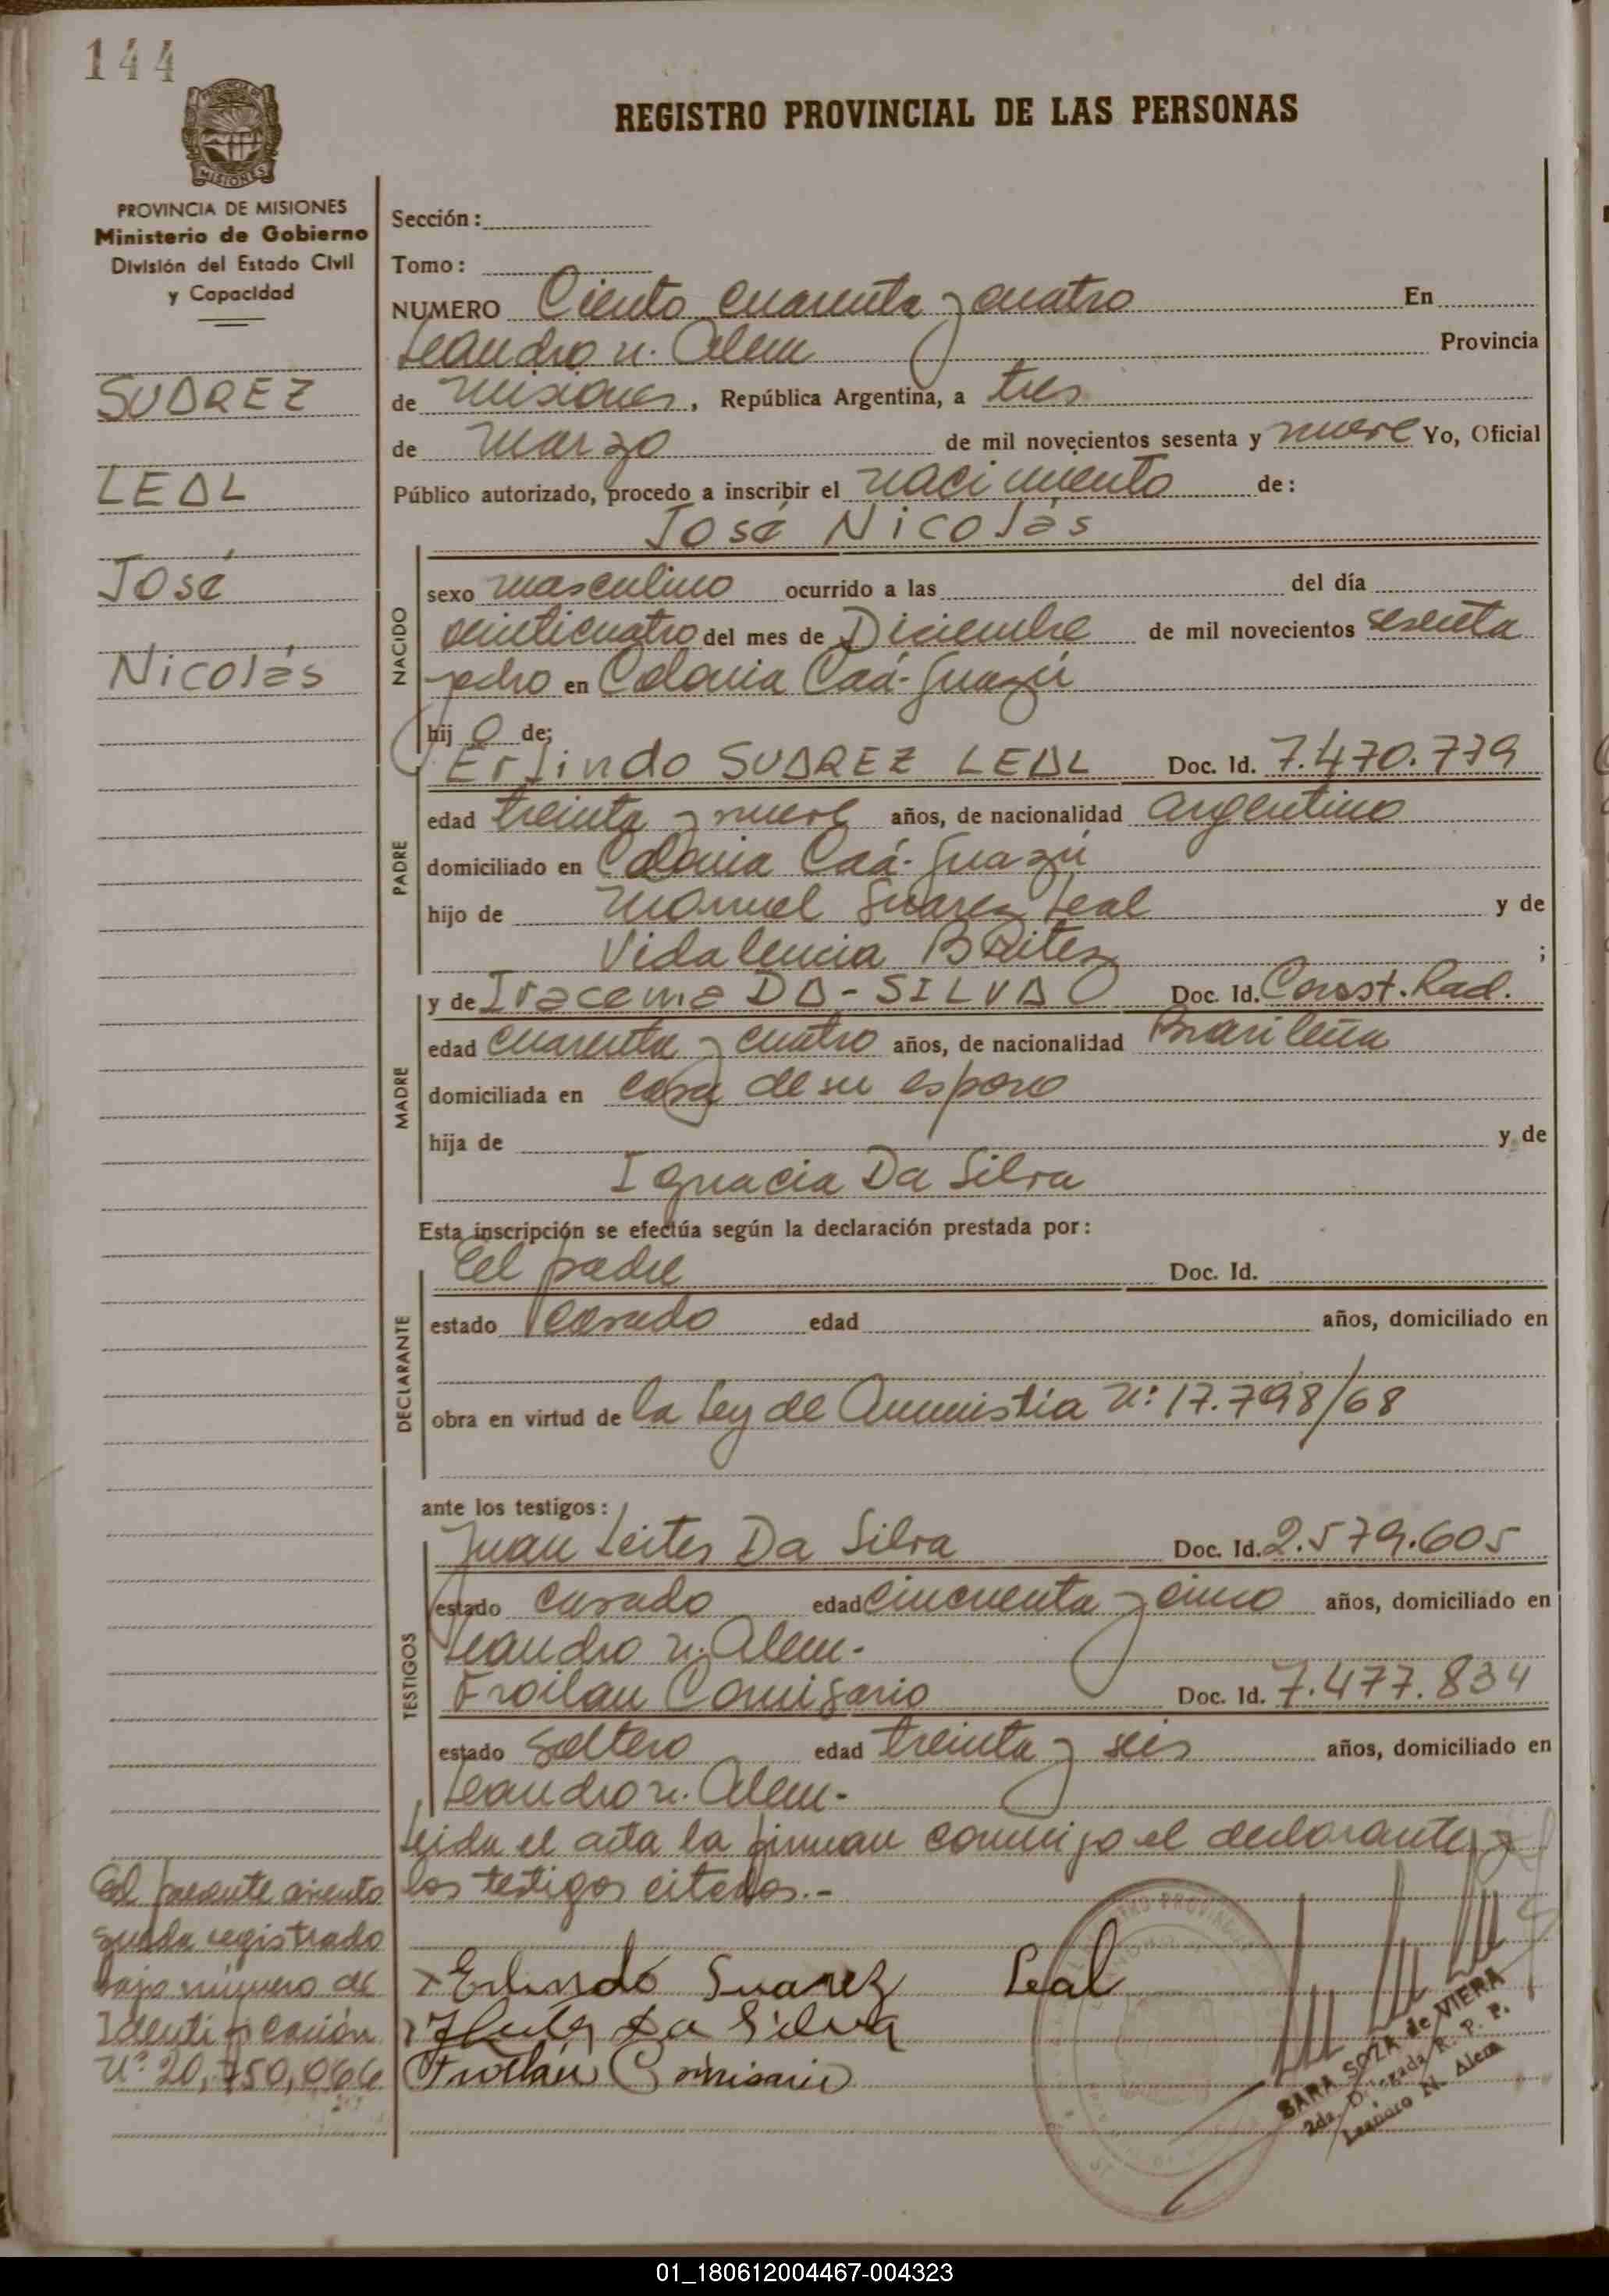 144
PROVINCIA DE MISIONES
Ministerio de Gobierno
División del Estado Civil
y Capacidad
SUAREZ
LEAL
José
Nicolás
El presente asiento
queda registrado
bajo número de
Identificación
Nº 20,750,066
REGISTRO PROVINCIAL DE LAS PERSONAS
Sección:
Tomo:
NUMERO Ciento cuarenta y cuatro En
Leandro N. Alem Provincia
de Misiones, República Argentina, a tres
de Marzo de mil novecientos sesenta y nueve Yo, Oficial
Público autorizado, procedo a inscribir el nacimiento de:
José Nicolás
NACIDO
sexo masculino ocurrido a las del día
veinticuatro del mes de Diciembre de mil novecientos sesenta
y ocho en Colonia Caá-Guazú
hijo de;
PADRE
Erlindo SUAREZ LEAL Doc. Id. 7.470.779
edad treinta y nueve años, de nacionalidad argentino
domiciliado en Colonia Caá-Guazú
hijo de Manuel Suarez Leal y de
Vidalencia Britez ;
MADRE
y de Iracema DA-SILVA Doc. Id. Const. Rad.
edad cuarenta y cuatro años, de nacionalidad Brasileña
domiciliada en casa de su esposo
hija de y de
Ignacia Da Silva
Esta inscripción se efectúa según la declaración prestada por:
DECLARANTE
El padre Doc. Id.
estado casado edad años, domiciliado en
obra en virtud de la Ley de Amnistia Nº 17.798/68
ante los testigos:
TESTIGOS
Juan Leites Da Silva Doc. Id. 2.579.605
estado casado edad cincuenta y cinco años, domiciliado en
Leandro N. Alem.-
Froilan Comisario Doc. Id. 7.477.834
estado Soltero edad treinta y seis años, domiciliado en
Leandro N. Alem.-
Leida el acta la firman conmigo el declarante y
los testigos citados.-
Erlindo Suarez Leal
Da Silva
Froilán Comisario
SARA SOZA de VIERA
2da. Delegada R. P. P.
Leandro N. Alem
01_180612004467-004323